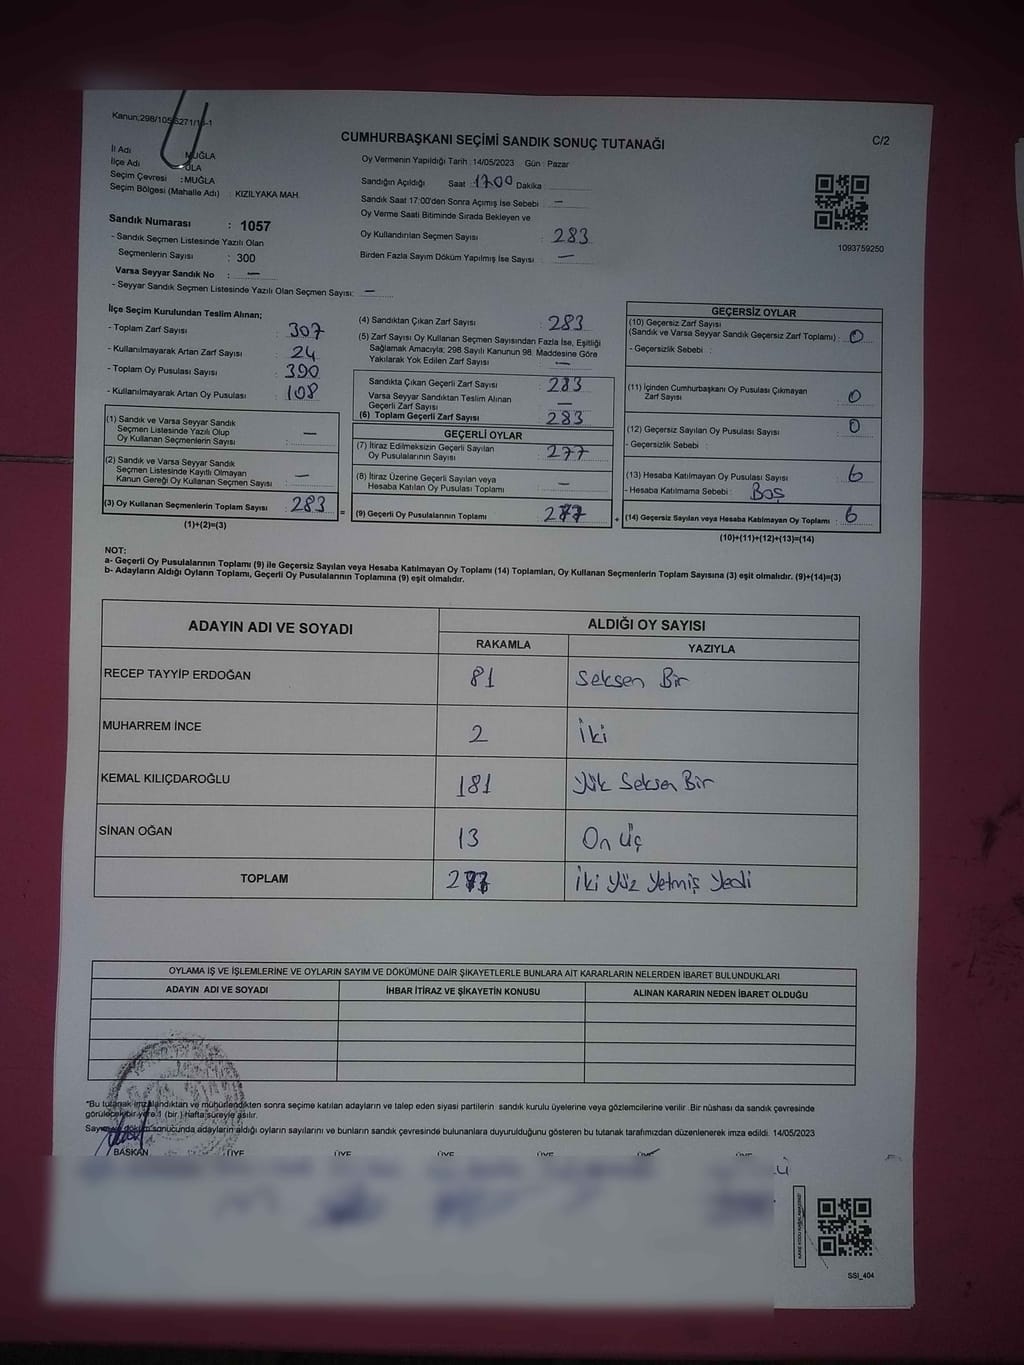 Kanun;298/105
CUMHURBAŞKANI SEÇİMİ SANDIK SONUÇ TUTANAĞI
C/2
İl Adı MUĞLA
İlçe Adı ULA
Seçim Çevresi : MUĞLA
Seçim Bölgesi (Mahalle Adı) : KIZILYAKA MAH.
Sandık Numarası : 1057
- Sandık Seçmen Listesinde Yazılı Olan
Seçmenlerin Sayısı : 300
Varsa Seyyar Sandık No : —
- Seyyar Sandık Seçmen Listesinde Yazılı Olan Seçmen Sayısı: —
Oy Vermenin Yapıldığı Tarih : 14/05/2023 Gün : Pazar
Sandığın Açıldığı Saat 17.00 Dakika
Sandık Saat 17:00'den Sonra Açımış İse Sebebi : —
Oy Verme Saati Bitiminde Sırada Bekleyen ve
Oy Kullandırılan Seçmen Sayısı : 283
Birden Fazla Sayım Döküm Yapılmış İse Sayısı : —
1093759250
İlçe Seçim Kurulundan Teslim Alınan;
- Toplam Zarf Sayısı : 307
- Kullanılmayarak Artan Zarf Sayısı : 24
- Toplam Oy Pusulası Sayısı : 390
- Kullanılmayarak Artan Oy Pusulası : 108
(1) Sandık ve Varsa Seyyar Sandık
Seçmen Listesinde Yazılı Olup
Oy Kullanan Seçmenlerin Sayısı : —
(2) Sandık ve Varsa Seyyar Sandık
Seçmen Listesinde Kayıtlı Olmayan
Kanun Gereği Oy Kullanan Seçmen Sayısı : —
(3) Oy Kullanan Seçmenlerin Toplam Sayısı : 283 =
(1)+(2)=(3)
(4) Sandıktan Çıkan Zarf Sayısı : 283
(5) Zarf Sayısı Oy Kullanan Seçmen Sayısından Fazla İse, Eşitliği
Sağlamak Amacıyla; 298 Sayılı Kanunun 98. Maddesine Göre
Yakılarak Yok Edilen Zarf Sayısı : —
Sandıkta Çıkan Geçerli Zarf Sayısı : 283
Varsa Seyyar Sandıktan Teslim Alınan
Geçerli Zarf Sayısı : —
(6) Toplam Geçerli Zarf Sayısı : 283
GEÇERLİ OYLAR
(7) İtiraz Edilmeksizin Geçerli Sayılan
Oy Pusulalarının Sayısı : 277
(8) İtiraz Üzerine Geçerli Sayılan veya
Hesaba Katılan Oy Pusulası Toplamı : —
(9) Geçerli Oy Pusulalarının Toplamı : 277 +
GEÇERSİZ OYLAR
(10) Geçersiz Zarf Sayısı
(Sandık ve Varsa Seyyar Sandık Geçersiz Zarf Toplamı) : 0
- Geçersizlik Sebebi :
(11) İçinden Cumhurbaşkanı Oy Pusulası Çıkmayan
Zarf Sayısı : 0
(12) Geçersiz Sayılan Oy Pusulası Sayısı : 0
- Geçersizlik Sebebi :
(13) Hesaba Katılmayan Oy Pusulası Sayısı : 6
- Hesaba Katılmama Sebebi : Boş
(14) Geçersiz Sayılan veya Hesaba Katılmayan Oy Toplamı : 6
(10)+(11)+(12)+(13)=(14)
NOT:
a- Geçerli Oy Pusulalarının Toplamı (9) ile Geçersiz Sayılan veya Hesaba Katılmayan Oy Toplamı (14) Toplamları, Oy Kullanan Seçmenlerin Toplam Sayısına (3) eşit olmalıdır. (9)+(14)=(3)
b- Adayların Aldığı Oyların Toplamı, Geçerli Oy Pusulalarının Toplamına (9) eşit olmalıdır.
ADAYIN ADI VE SOYADI
ALDIĞI OY SAYISI
RAKAMLA YAZIYLA
RECEP TAYYİP ERDOĞAN 81 Seksen Bir
MUHARREM İNCE 2 İki
KEMAL KILIÇDAROĞLU 181 Yük Seksen Bir
SİNAN OĞAN 13 On Üç
TOPLAM 277 İki Yüz Yetmiş Yedi
OYLAMA İŞ VE İŞLEMLERİNE VE OYLARIN SAYIM VE DÖKÜMÜNE DAİR ŞİKAYETLERLE BUNLARA AİT KARARLARIN NELERDEN İBARET BULUNDUKLARI
ADAYIN ADI VE SOYADI İHBAR İTİRAZ VE ŞİKAYETİN KONUSU ALINAN KARARIN NEDEN İBARET OLDUĞU
*Bu tutanak imzalandıktan ve mühürlendikten sonra seçime katılan adayların ve talep eden siyasi partilerin sandık kurulu üyelerine veya gözlemcilerine verilir .Bir nüshası da sandık çevresinde
görülecek bir yere 1 (bir ) hafta süreyle asılır.
Sayım ve döküm sonucunda adayların aldığı oyların sayılarını ve bunların sandık çevresinde bulunanlara duyurulduğunu gösteren bu tutanak tarafımızdan düzenlenerek imza edildi. 14/05/2023
BAŞKAN ÜYE ÜYE ÜYE ÜYE ÜYE ÜYE
SSI_404